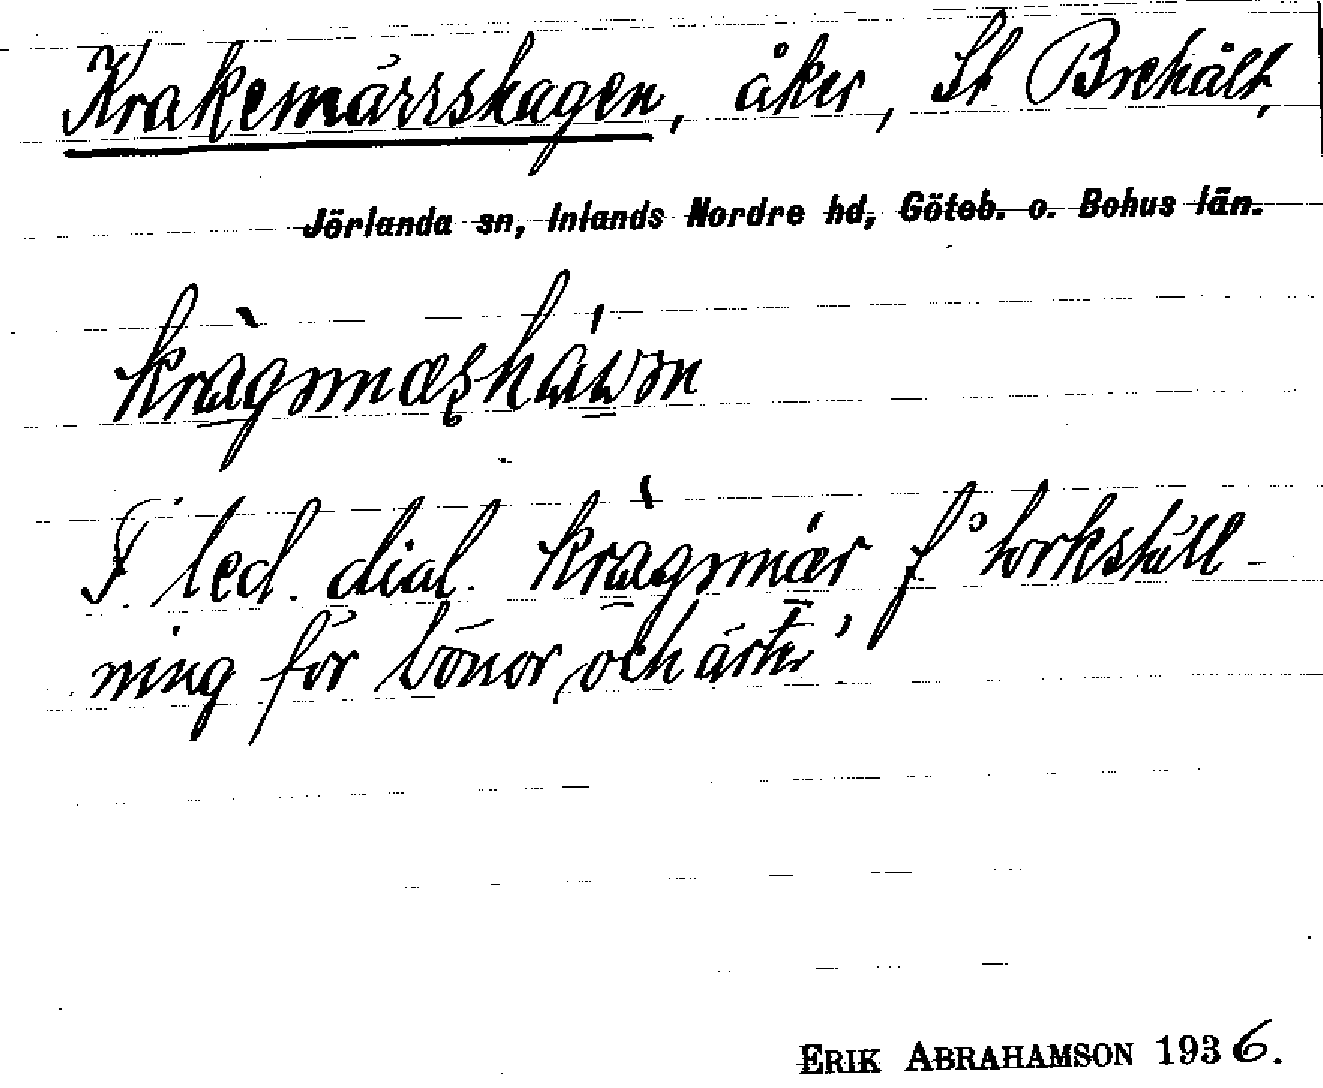 Krakemärrshagen, åker, St Brehält,
Jörlanda sn, Inlands Nordre hd, Göteb. o. Bohus län.
F. led. dial. f 'torkställ-
ning för bönor och ärter'
ERIK ABRAHAMSON 1936.